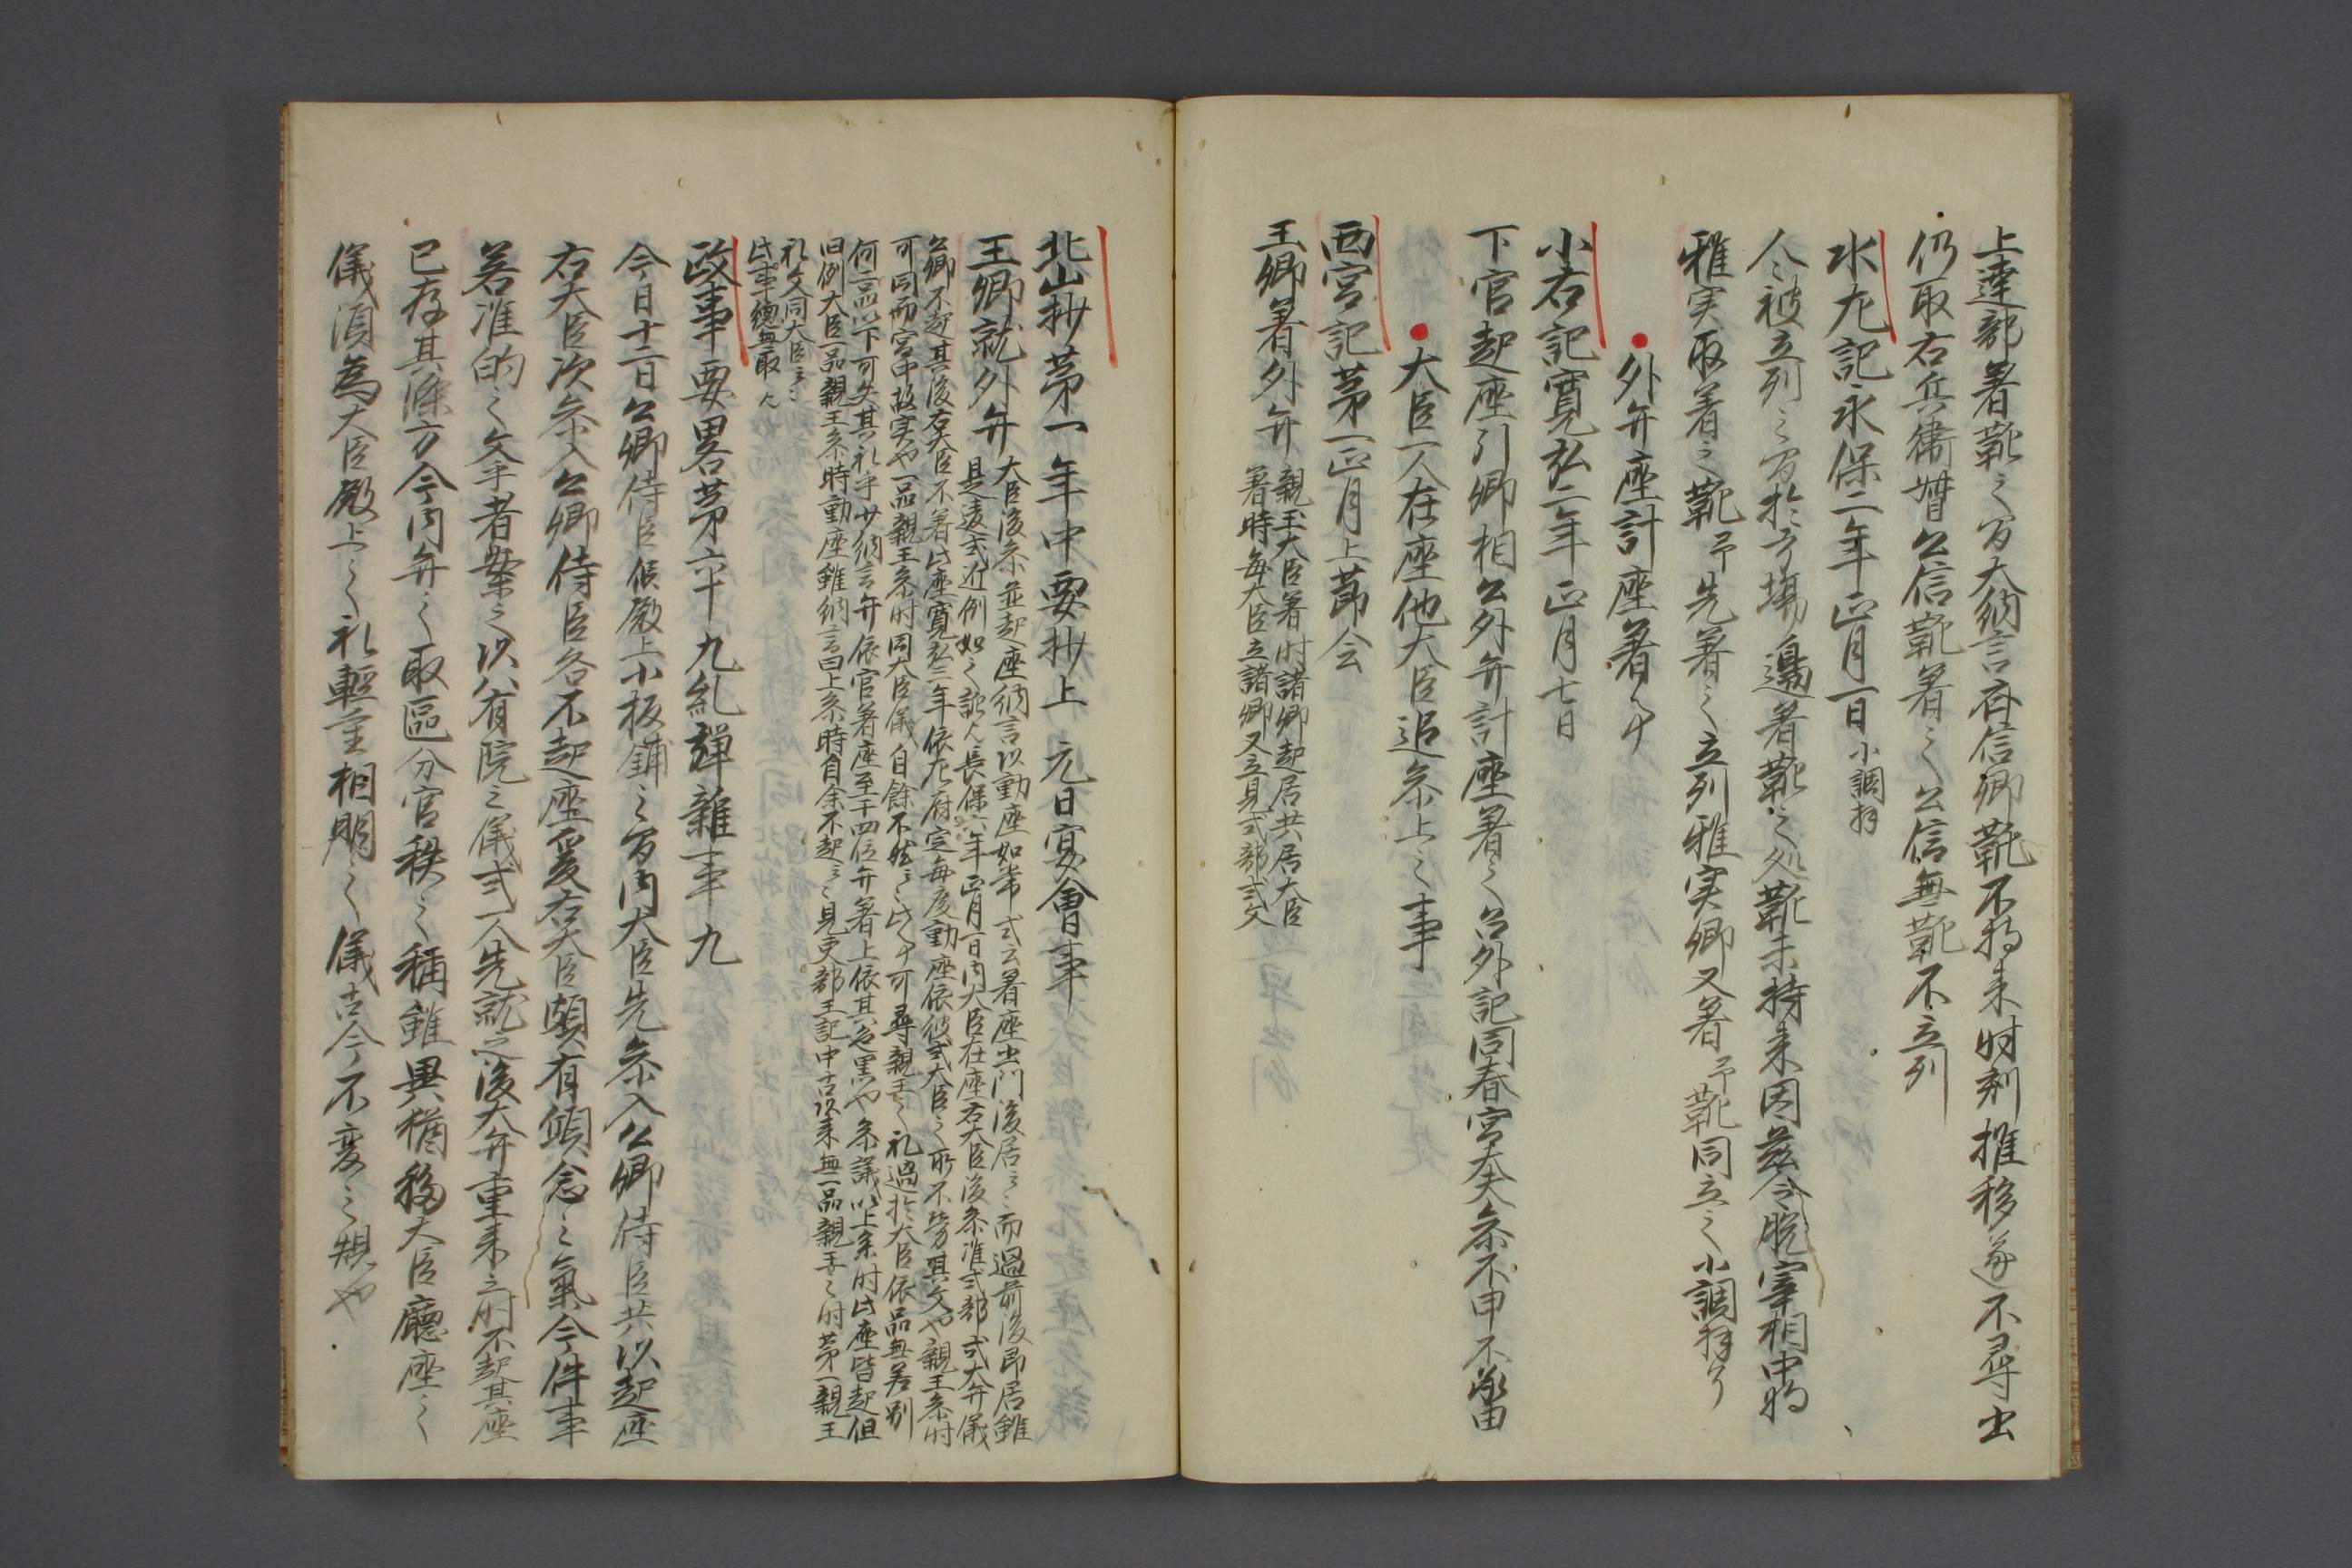 上達部着靴之間大納言斉信卿靴不持来時剋推移遂不尋出
仍取右兵衛督公信靴着之公信無靴不立列
水左記永保二年正月一日小調拝
令被立列之間於弓場邊着靴之処靴未持来因茲令脱宰相中将
雅実取着之靴予先着之立列雅実卿又着予靴同立之小調拝了
外弁座計座着事
小右記寛弘二年正月七日
下官起座引卿相公外弁計座着之召外記問春宮大夫参不申不參由
大臣一人在座他大臣追参上之事
西宮記第一正月上節会
王卿着外弁親王大臣着時諸卿起居共居大臣
着時毎大臣立諸卿又立見式部式文
北山抄第一年中要抄上 元日宴會事
王卿就外弁大臣後参並起座納言以動座如常式云着座出門後居云々而過前後即居雖
是違式近例如之説人長保六年正月一日内大臣在座右大臣後参准式部式大弁儀
公卿不起其後右大臣不着此座寛弘二年依左府定毎度動座依彼式大臣之所不労其文也親王参時
可同而宮中故実也一品親王参時同大臣儀自餘不然云々此事可尋親王之礼過於大臣依品無差別
何二品以下可失其礼乎少納言弁依官着座至于四位弁着上依其色黒也参議以上参時此座皆起但
旧例大臣一品親王参時動座雖納言曰上参時自余不起云々見吏部王記中古以来無一品親王之時第一親王
礼文同大臣云々
此事總無取人
政事要畧第六十九糺弾雑事九
今日十二日公卿侍臣候殿上小板鋪之間内大臣先参入公卿侍臣共以起座
右大臣次参入公卿侍臣各不起座爰右大臣頗有傾念之氣今件事
若准的之文乎者案之以八省院之儀式一人先就之後大弁重来之時不起其座
已存其條方今内弁之取區分官秩之稱雖異猶移大臣廳座之
儀須為大臣殿上之礼輕重相明之儀古今不変之規也